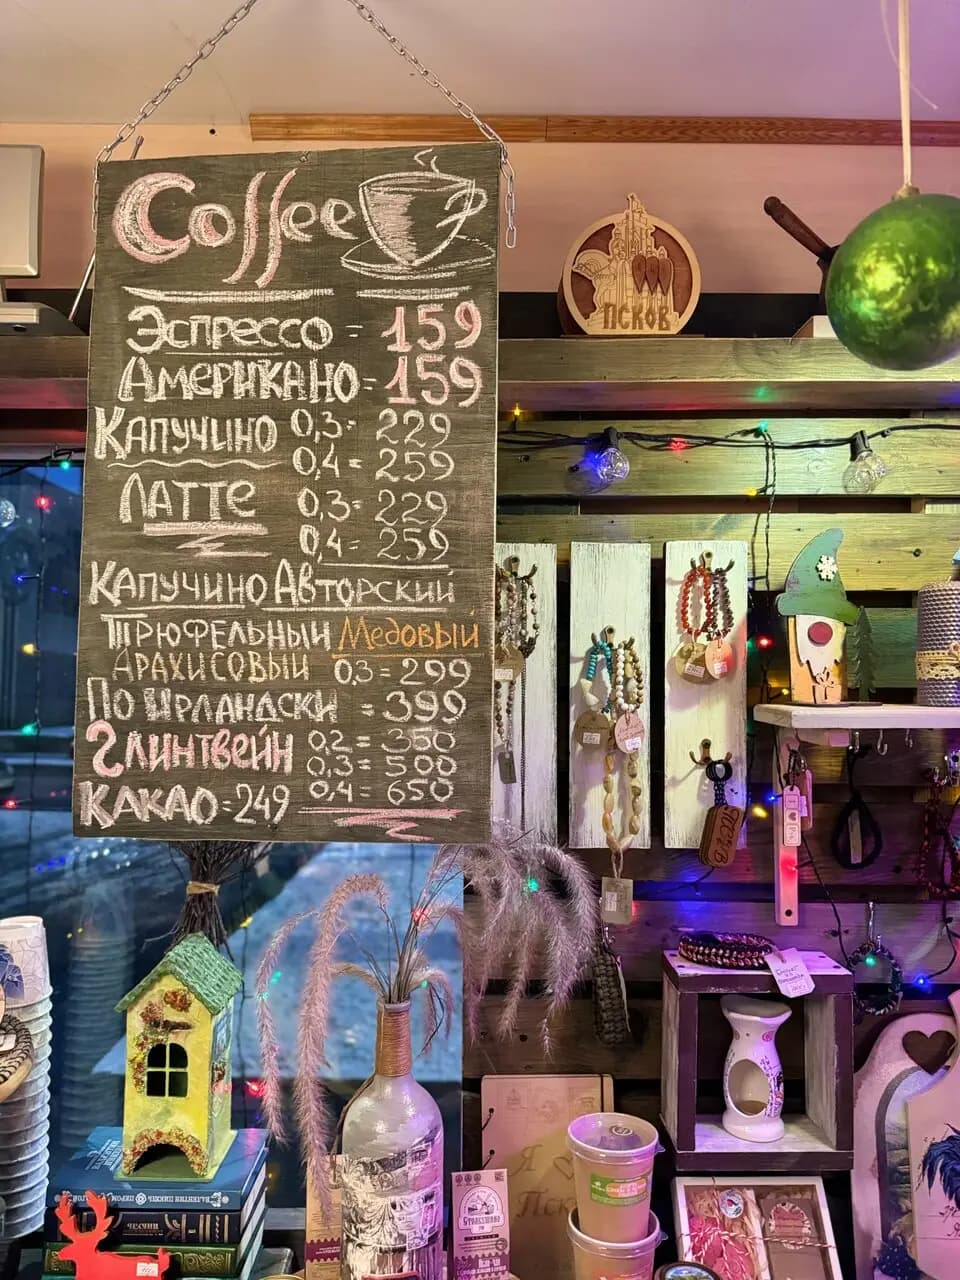 Coffee
Эспрессо = 159
Американо = 159
Капучино 0,3 = 229
0,4 = 259
Латте 0,3 = 229
0,4 = 259
Капучино Авторский
Трюфельный Медовый
Арахисовый 0,3 = 299
По Ирландски = 399
Глинтвейн 0,2 = 350
0,3 = 500
0,4 = 650
Какао = 249
ПСКОВ
Я